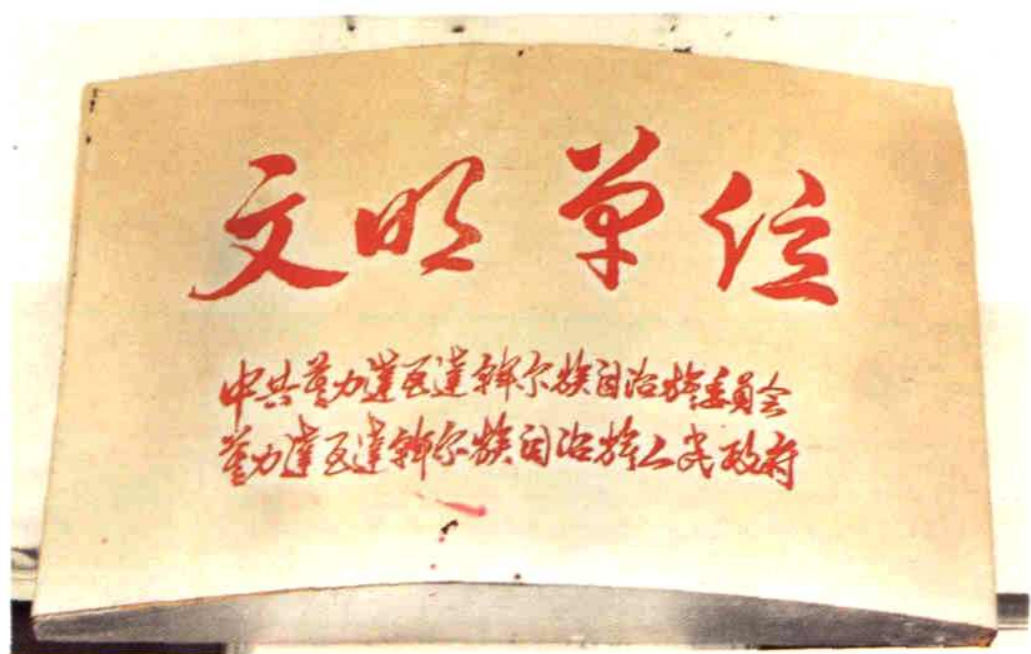 文明单位
中共莫力达瓦达斡尔族自治旗委员会
莫力达瓦达斡尔族自治旗人民政府